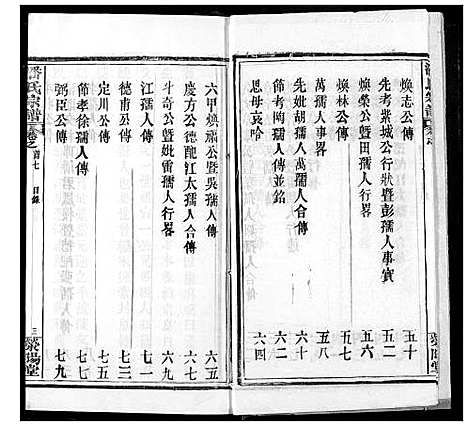 煥志公傳 五十
先考崇城公行狀暨彭孺人事實 五一
煥榮公暨田孺人行畧 五二
煥林公傳 五七
萬孺人傳 五八
先妣胡孺人萬孺人合傳 六十
節孝陶孺人傳並銘 六二
思母哀哈 六四
六甲煥肅公暨吳孺人傳 六五
慶方公德配江太孺人合傳 六七
斗奇公暨妣雷孺人行畧 六九
江孺人傳 七一
德甫公傳 七二
定川公傳 七四
節孝徐孺人傳 七七
弼臣公傳 七九
潘氏宗譜 卷之首七 目錄 三 滎陽堂